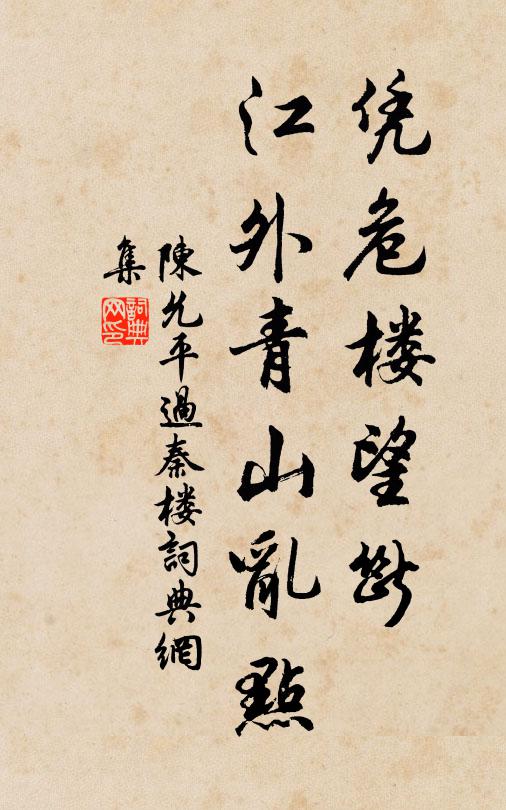 凭危楼望断
江外青山亂點
陳允平過秦楼詞典網
集
詞典網印